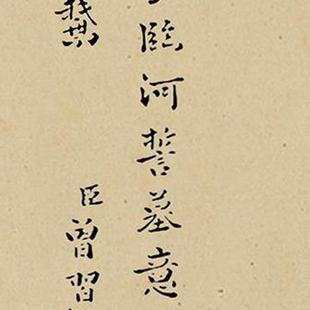 臨河誓墓意
臣曾習